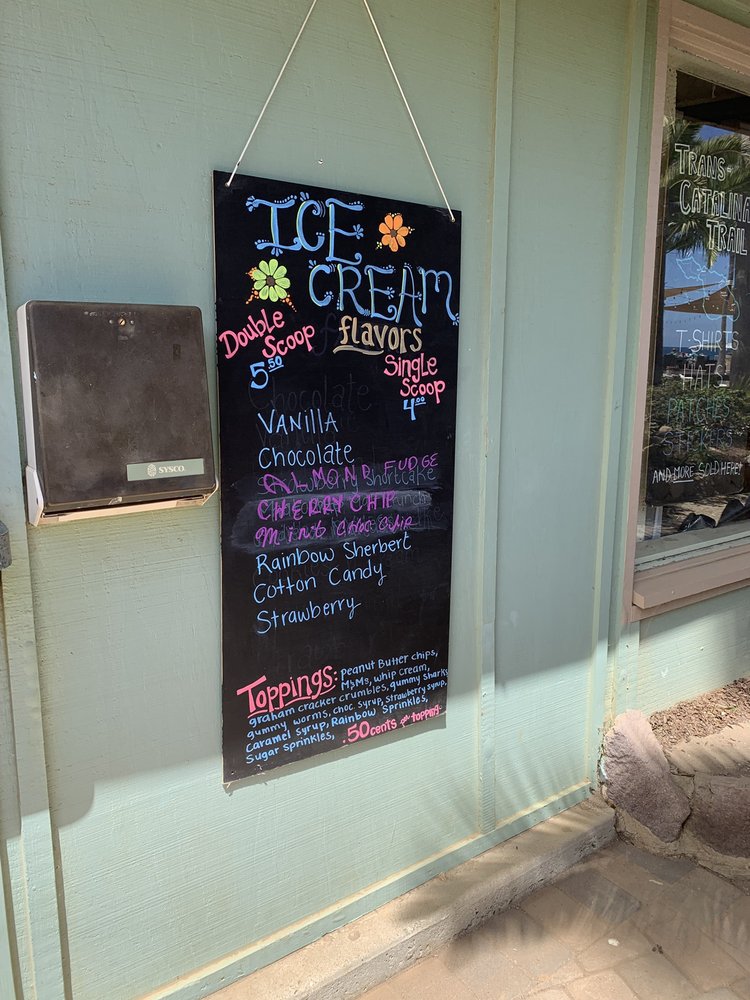 ICE
CREAM
flavors
Double
Scoop
5.50
Single
Scoop
4.00
VANILLA
Chocolate
ALMOND FUDGE
CHERRY CHIP
Mint choc chip
Rainbow Sherbert
Cotton Candy
Strawberry
Toppings: peanut Butter chips,
M&Ms, whip cream,
graham cracker crumbles, gummy sharks,
gummy worms, choc syrup, strawberry syrup,
Caramel syrup, Rainbow Sprinkles,
Sugar sprinkles,
.50 cents per topping
SYSCO
TRANS-
CATALINA
TRAIL
T-SHIRTS
HATS
PATCHES
STICKERS
AND MORE SOLD HERE!